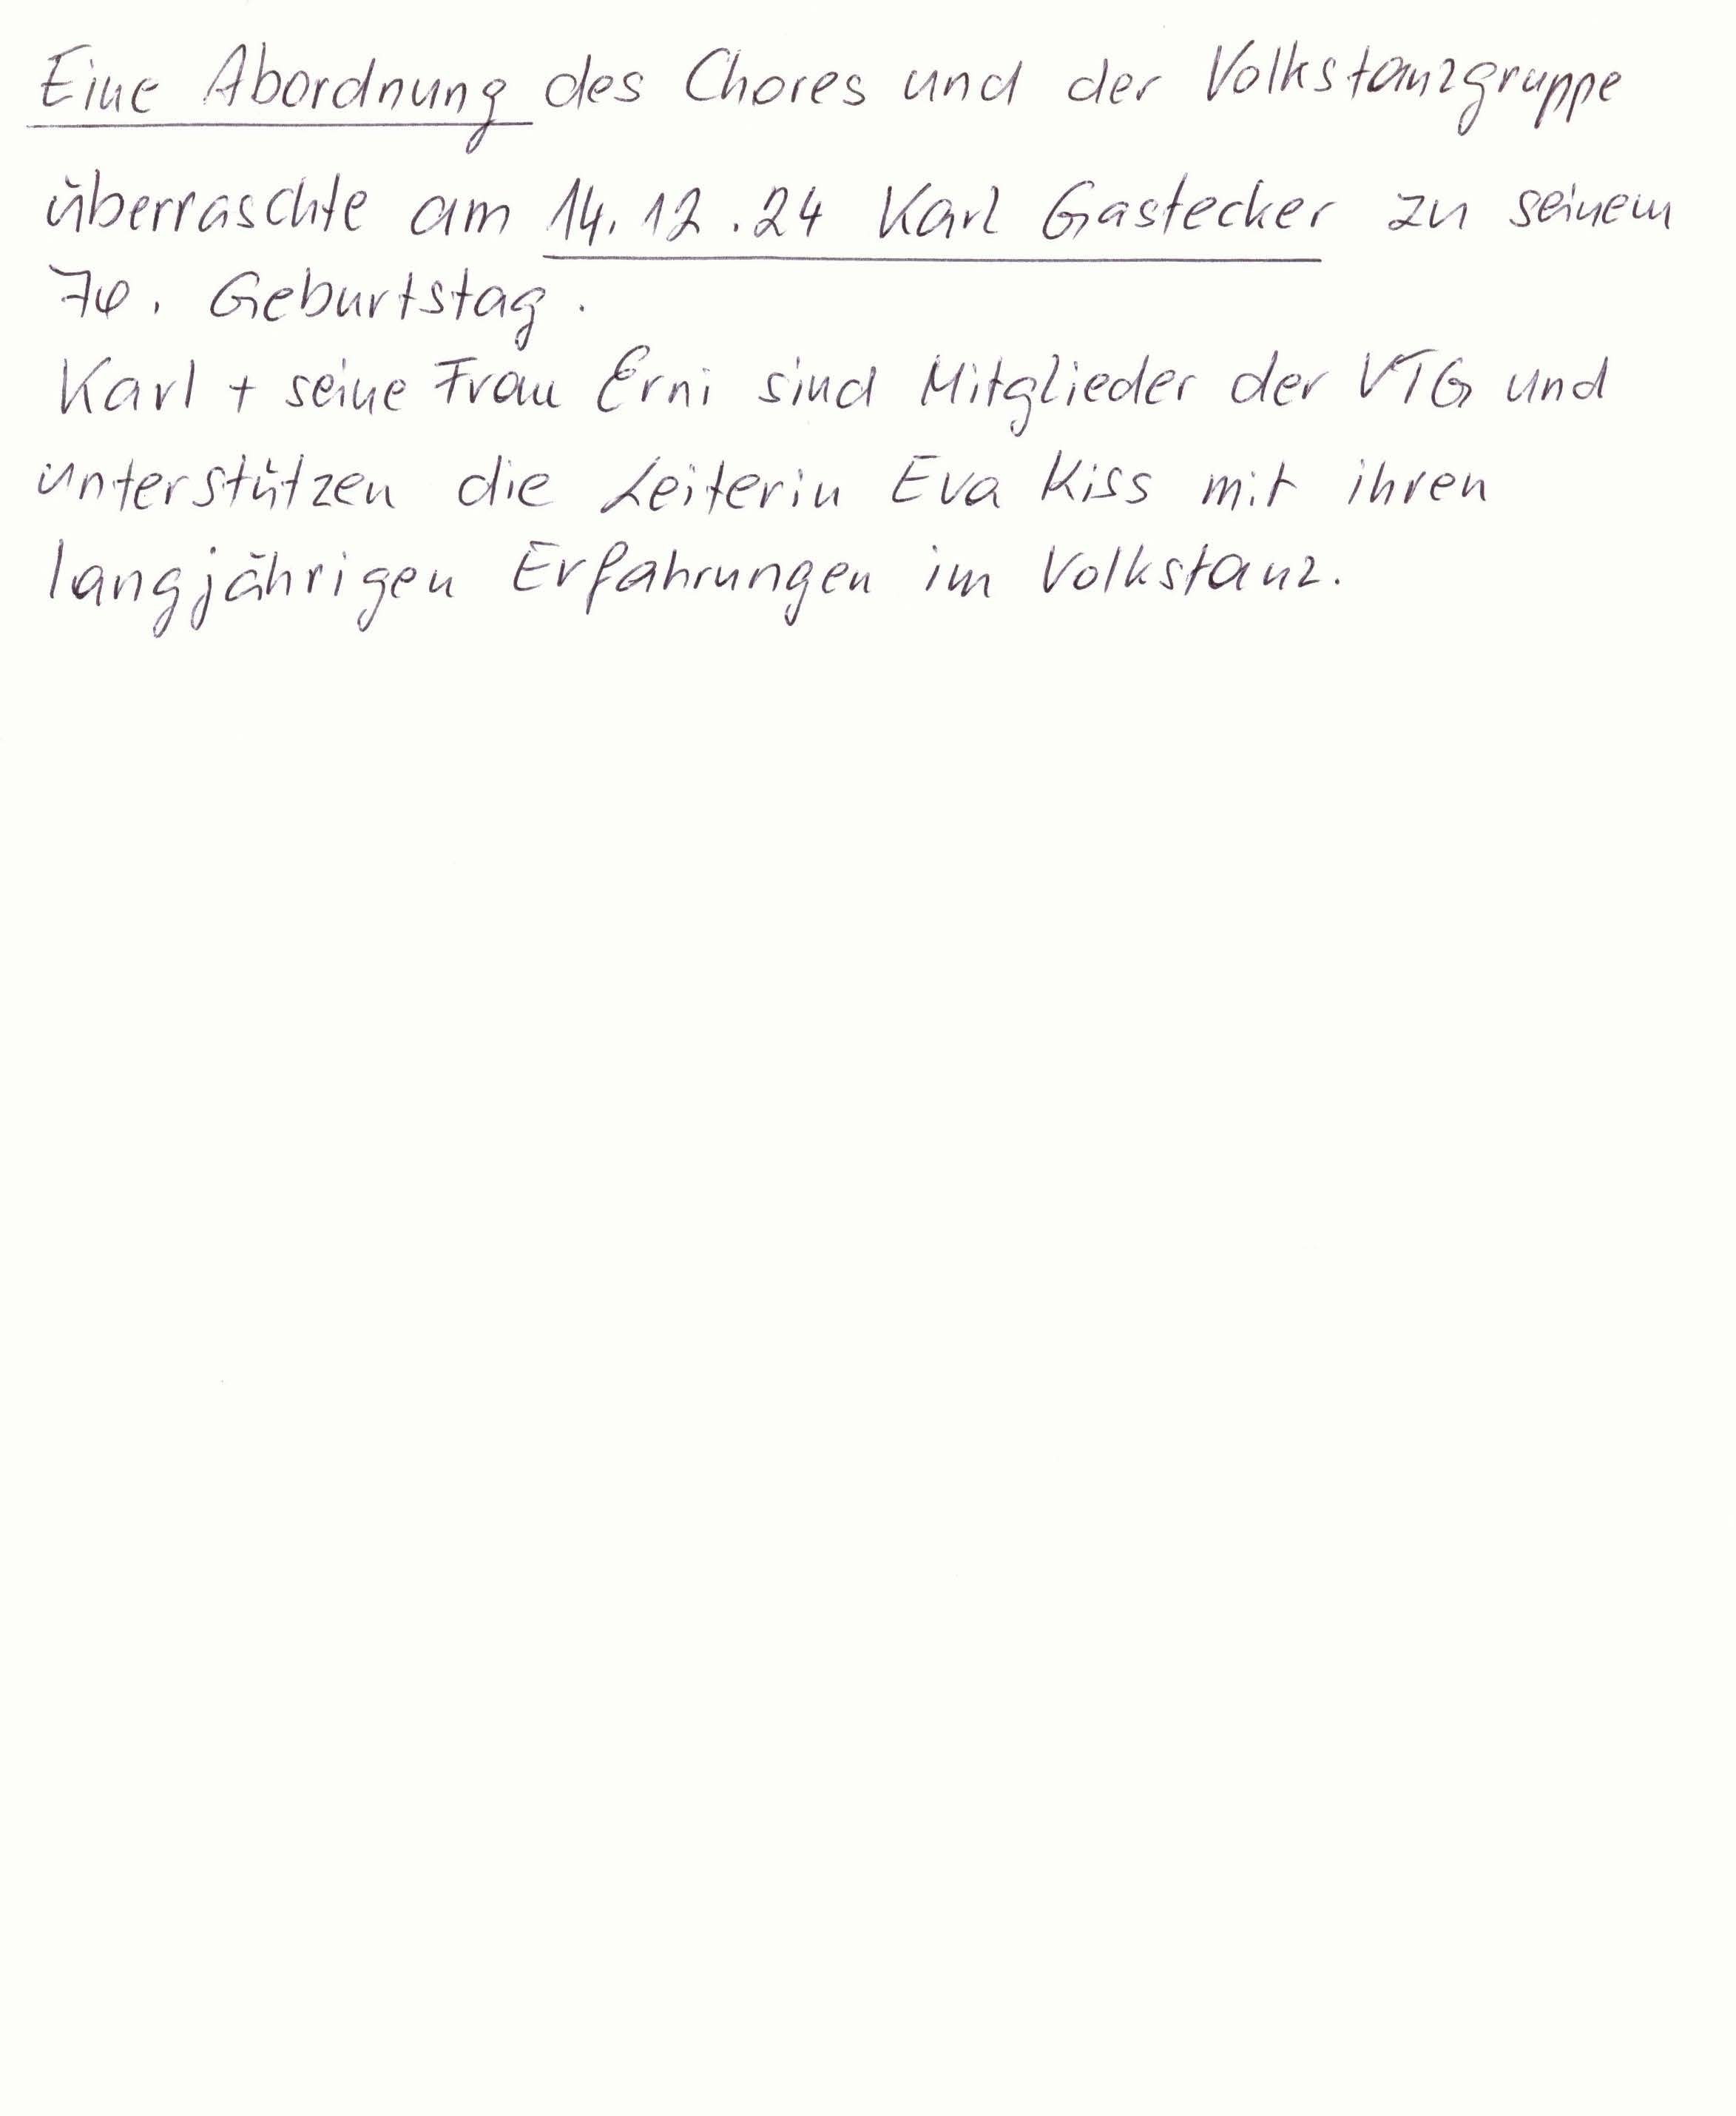 Eine Abordnung des Chores und der Volkstanzgruppe
überraschte am 14.12.24 Karl Gastecker zu seinem
70. Geburtstag.
Karl + seine Frau Erni sind Mitglieder der VTG und
unterstützen die Leiterin Eva Kiss mit ihren
langjährigen Erfahrungen im Volkstanz.